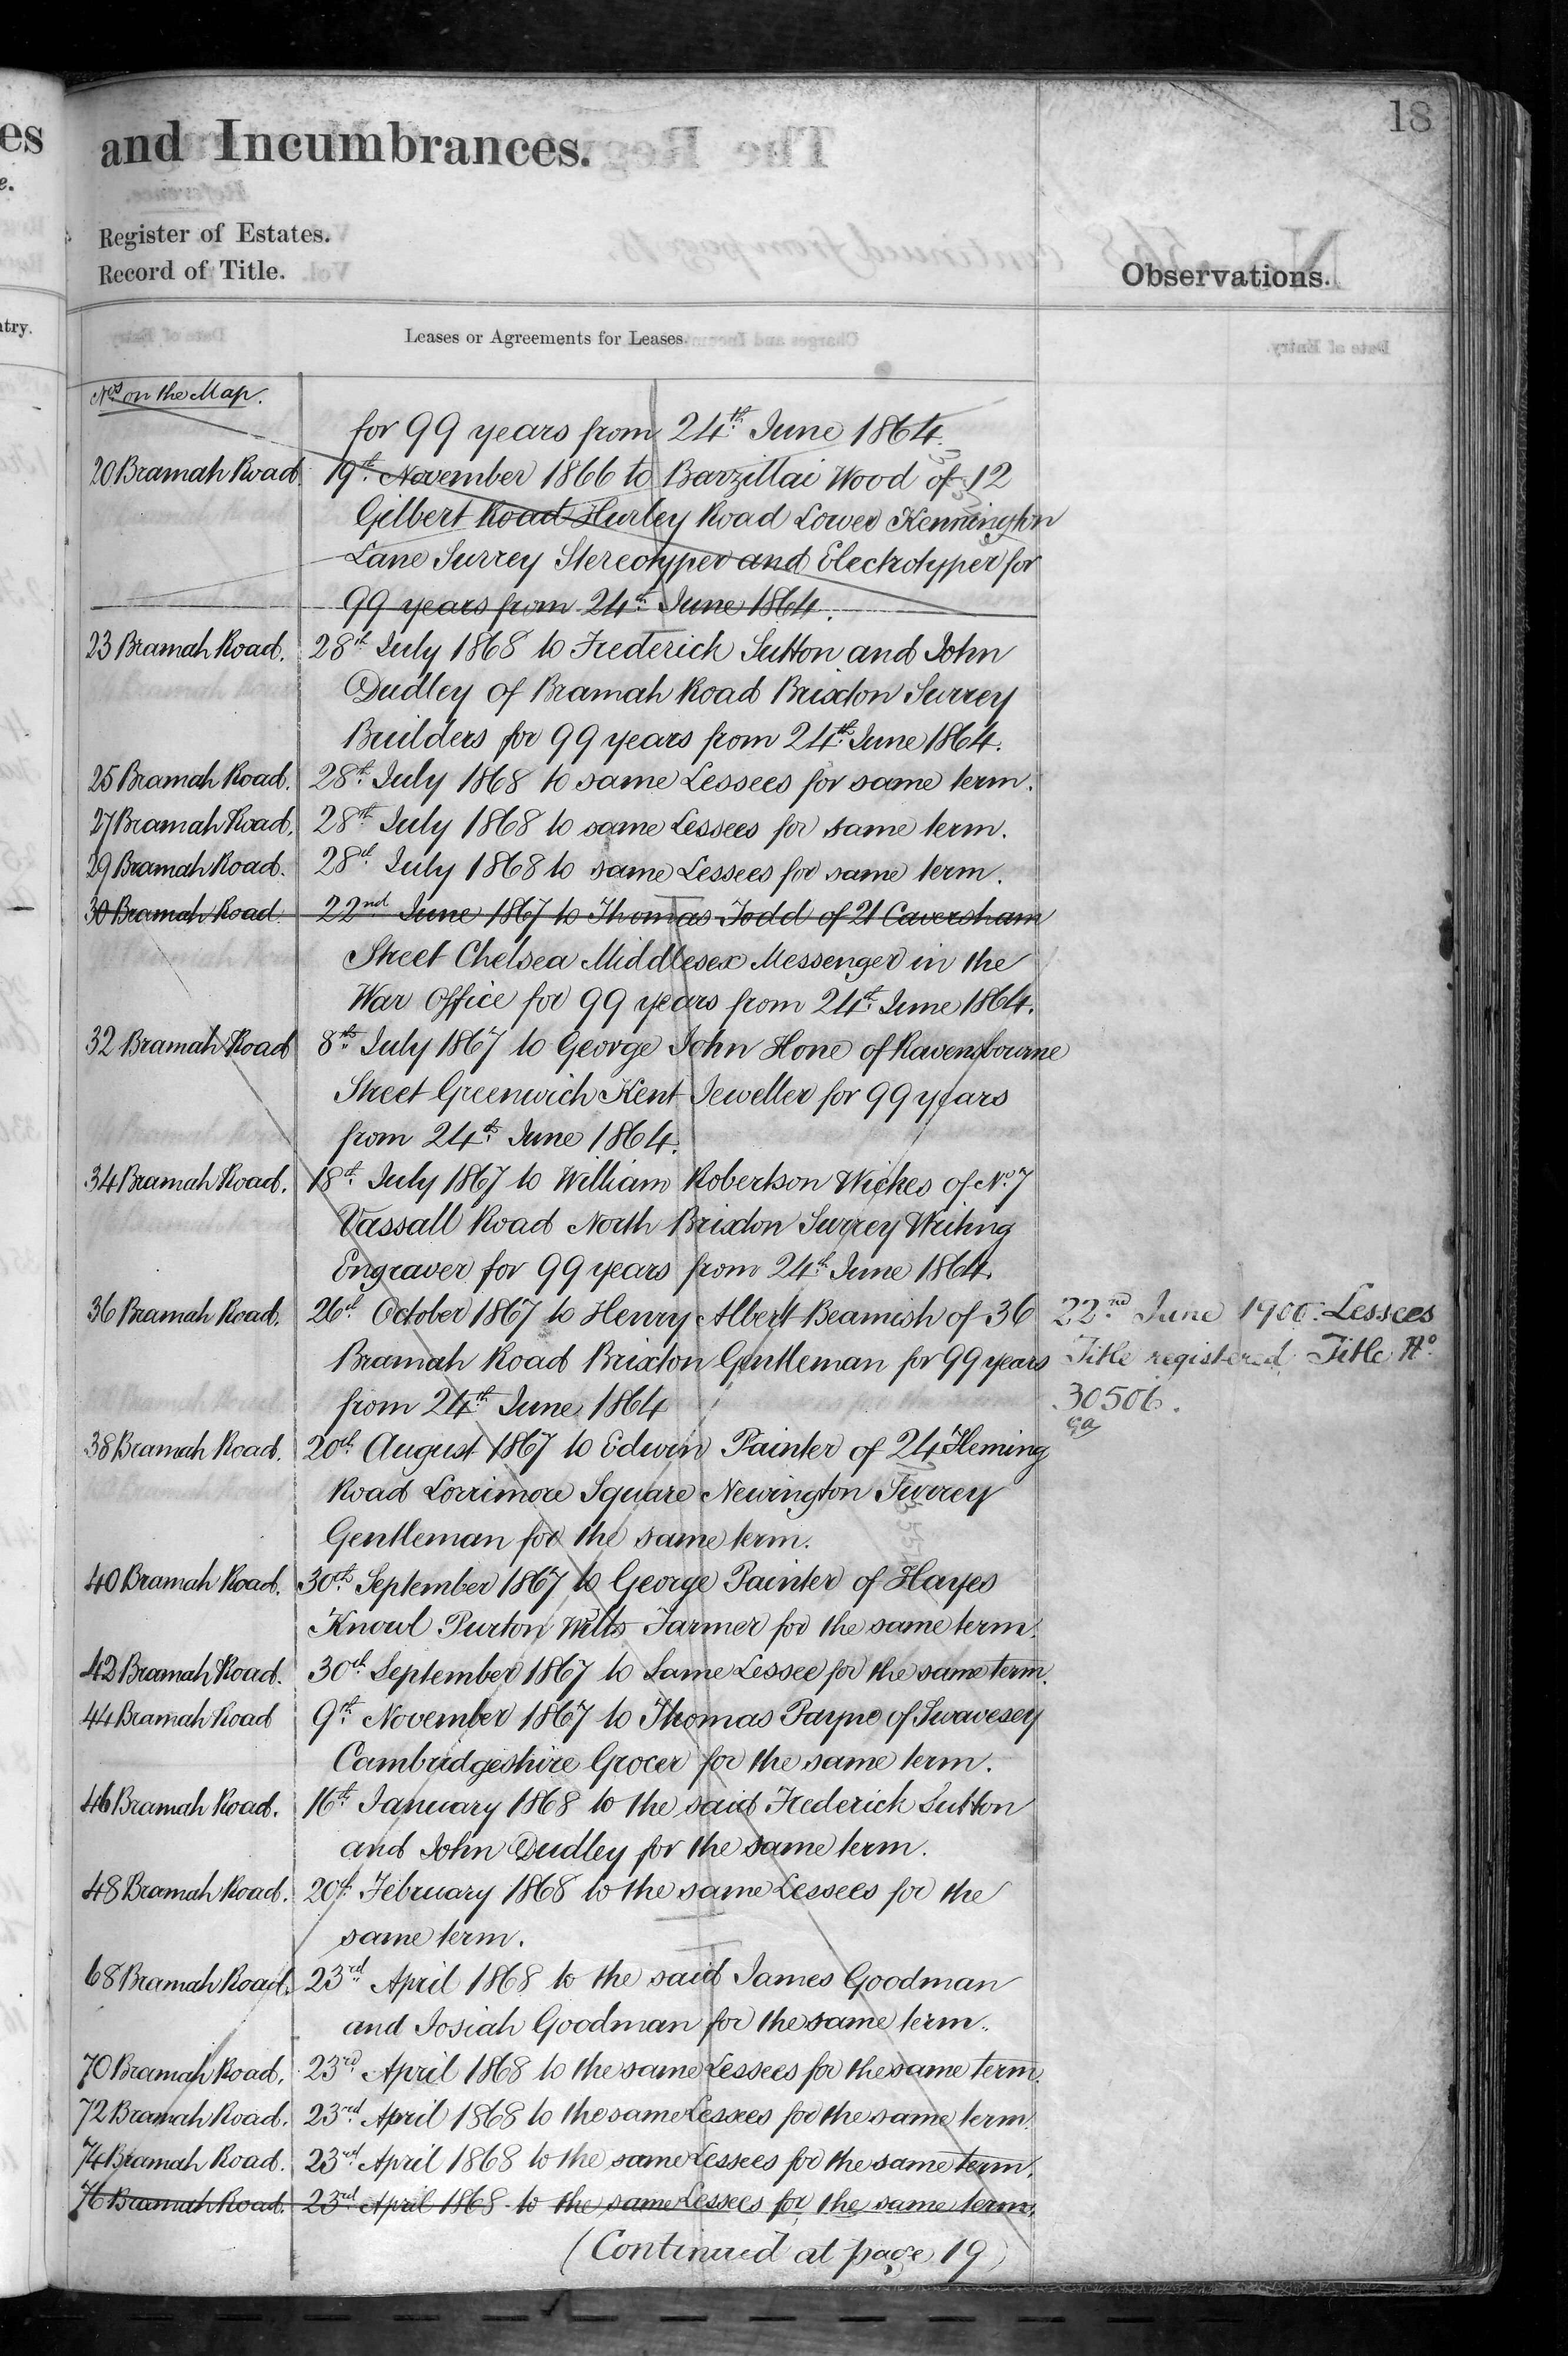 18
and Incumbrances.
Register of Estates.
Record of Title.
Observations.
Leases or Agreements for Leases.
Nos. on the Map.
for 99 years from 24th. June 1864.
20 Bramah Road. 19th. November 1866 to Barzillai Wood of 12
Gilbert Road Hurley Road Lower Kennington
Lane Surrey Stereotyper and Electrotyper for
99 years from 24th. June 1864.
23 Bramah Road. 28th July 1868 to Frederick Sutton and John
Dudley of Bramah Road Brixton Surrey
Builders for 99 years from 24th. June 1864.
25 Bramah Road. 28th. July 1868 to same Lessees for same term.
27 Bramah Road. 28th July 1868 to same Lessees for same term.
29 Bramah Road. 28th. July 1868 to same Lessees for same term.
30 Bramah Road. 22nd June 1867 to Thomas Todd of 21 Caversham
Street Chelsea Middlesex Messenger in the
War Office for 99 years from 24th. June 1864.
32 Bramah Road 8th. July 1867 to George John Hone of Ravensbourne
Street Greenwich Kent Jeweller for 99 years
from 24th. June 1864.
34 Bramah Road. 18th. July 1867 to William Robertson Wickes of No. 7
Vassall Road North Brixton Surrey Writing
Engraver for 99 years from 24th June 1864.
36 Bramah Road. 26th October 1867 to Henry Albert Beamish of 36
Bramah Road Brixton Gentleman for 99 years
from 24th. June 1864
22nd June 1900. Lessees
Title registered. Title No.
30506.
38 Bramah Road. 20th August 1867 to Edwin Painter of 24 Fleming
Road Lorrimore Square Newington Surrey
Gentleman for the same term.
40 Bramah Road. 30th. September 1867 to George Painter of Hayes
Knowl Purton Wilts Farmer for the same term.
42 Bramah Road. 30th. September 1867 to Same Lessee for the same term.
44 Bramah Road 9th. November 1867 to Thomas Payne of Swavesey
Cambridgeshire Grocer for the same term.
46 Bramah Road. 16th. January 1868 to the said Frederick Sutton
and John Dudley for the same term.
48 Bramah Road. 20th. February 1868 to the same Lessees for the
same term.
68 Bramah Road. 23rd. April 1868 to the said James Goodman
and Josiah Goodman for the same term.
70 Bramah Road. 23rd. April 1868 to the same Lessees for the same term.
72 Bramah Road. 23rd. April 1868 to the same Lessees for the same term.
74 Bramah Road. 23rd April 1868 to the same Lessees for the same term.
76 Bramah Road. 23rd April 1868 to the same Lessees for the same term.
(Continued at page 19)